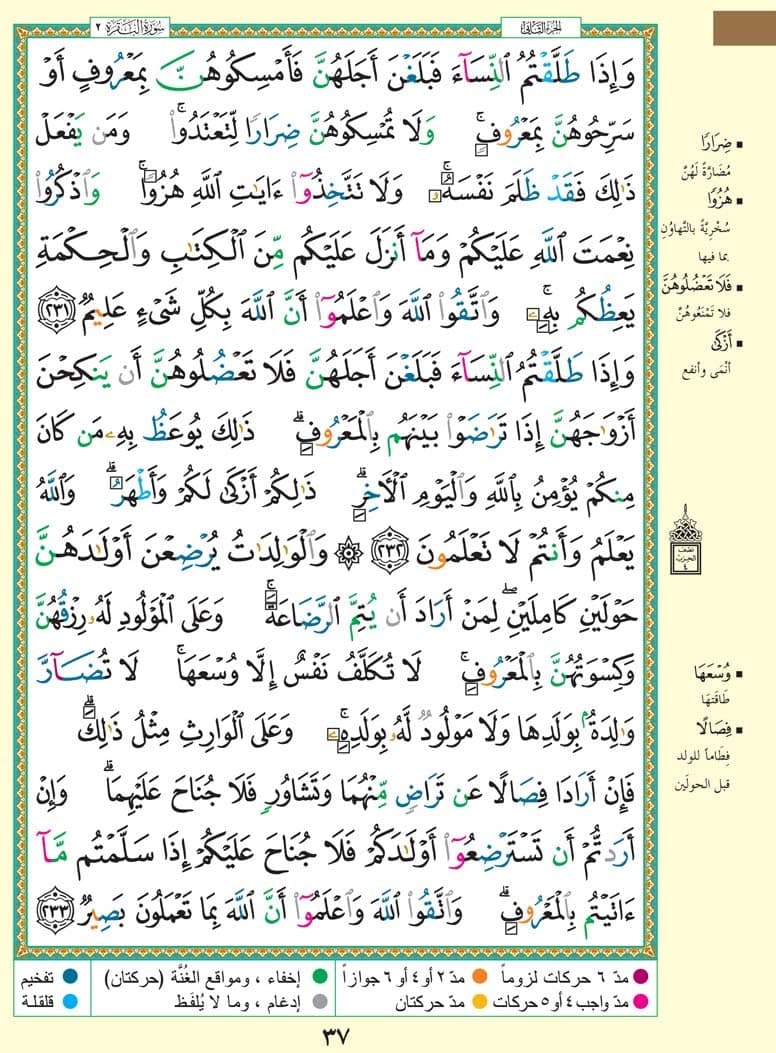 سُورَةُ البَقَرَةِ ٢
الجزء الثاني
وَإِذَا طَلَّقْتُمُ ٱلنِّسَآءَ فَبَلَغْنَ أَجَلَهُنَّ فَأَمْسِكُوهُنَّ بِمَعْرُوفٍ أَوْ
سَرِّحُوهُنَّ بِمَعْرُوفٍۚ وَلَا تُمْسِكُوهُنَّ ضِرَارًا لِّتَعْتَدُوا۟ۚ وَمَن يَفْعَلْ
ذَٰلِكَ فَقَدْ ظَلَمَ نَفْسَهُۥۚ وَلَا تَتَّخِذُوٓا۟ ءَايَٰتِ ٱللَّهِ هُزُوًاۚ وَٱذْكُرُوا۟
نِعْمَتَ ٱللَّهِ عَلَيْكُمْ وَمَآ أَنزَلَ عَلَيْكُم مِّنَ ٱلْكِتَٰبِ وَٱلْحِكْمَةِ
يَعِظُكُم بِهِۦۚ وَٱتَّقُوا۟ ٱللَّهَ وَٱعْلَمُوٓا۟ أَنَّ ٱللَّهَ بِكُلِّ شَىْءٍ عَلِيمٌ ٢٣١
وَإِذَا طَلَّقْتُمُ ٱلنِّسَآءَ فَبَلَغْنَ أَجَلَهُنَّ فَلَا تَعْضُلُوهُنَّ أَن يَنكِحْنَ
أَزْوَٰجَهُنَّ إِذَا تَرَٰضَوْا۟ بَيْنَهُم بِٱلْمَعْرُوفِۗ ذَٰلِكَ يُوعَظُ بِهِۦ مَن كَانَ
مِنكُمْ يُؤْمِنُ بِٱللَّهِ وَٱلْيَوْمِ ٱلْءَاخِرِۗ ذَٰلِكُمْ أَزْكَىٰ لَكُمْ وَأَطْهَرُۗ وَٱللَّهُ
يَعْلَمُ وَأَنتُمْ لَا تَعْلَمُونَ ٢٣٢ ۞ وَٱلْوَٰلِدَٰتُ يُرْضِعْنَ أَوْلَٰدَهُنَّ
حَوْلَيْنِ كَامِلَيْنِۖ لِمَنْ أَرَادَ أَن يُتِمَّ ٱلرَّضَاعَةَۚ وَعَلَى ٱلْمَوْلُودِ لَهُۥ رِزْقُهُنَّ
وَكِسْوَتُهُنَّ بِٱلْمَعْرُوفِۚ لَا تُكَلَّفُ نَفْسٌ إِلَّا وُسْعَهَاۚ لَا تُضَآرَّ
وَٰلِدَةٌۢ بِوَلَدِهَا وَلَا مَوْلُودٌ لَّهُۥ بِوَلَدِهِۦۚ وَعَلَى ٱلْوَارِثِ مِثْلُ ذَٰلِكَۗ
فَإِنْ أَرَادَا فِصَالًا عَن تَرَاضٍ مِّنْهُمَا وَتَشَاوُرٍ فَلَا جُنَاحَ عَلَيْهِمَاۗ وَإِنْ
أَرَدتُّمْ أَن تَسْتَرْضِعُوٓا۟ أَوْلَٰدَكُمْ فَلَا جُنَاحَ عَلَيْكُمْ إِذَا سَلَّمْتُم مَّآ
ءَاتَيْتُم بِٱلْمَعْرُوفِۗ وَٱتَّقُوا۟ ٱللَّهَ وَٱعْلَمُوٓا۟ أَنَّ ٱللَّهَ بِمَا تَعْمَلُونَ بَصِيرٌ ٢٣٣
ضِرَارًا
مُضَارَّةً لَهُنَّ
هُزُوًا
سُخْرِيَّةً بالتَّهاوُنِ
بما فيها
فَلَا تَعْضُلُوهُنَّ
فلا تَمْنَعُوهُنَّ
أَزْكَىٰ
أنْمَى وأنفع
نصف
الحزب
٤
وُسْعَهَا
طَاقَتَها
فِصَالًا
فِطَاماً للولد
قبل الحولَين
مدّ ٦ حركات لزوماً
مدّ ٢ أو ٤ أو ٦ جوازاً
إخفاء ، ومواقع الغُنَّة (حركتان)
تفخيم
مدّ واجب ٤ أو ٥ حركات
مدّ حركتان
إدغام ، وما لا يُلفَظ
قلقلة
٣٧